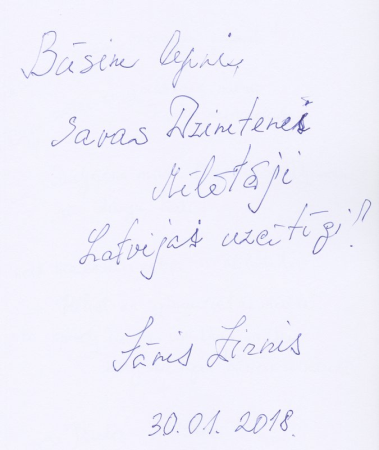 Būsim lepni,
savas Dzimtenes
Mīlētāji
Latvijas uzcītīgi!
Jānis Zirnis
30.01.2018.